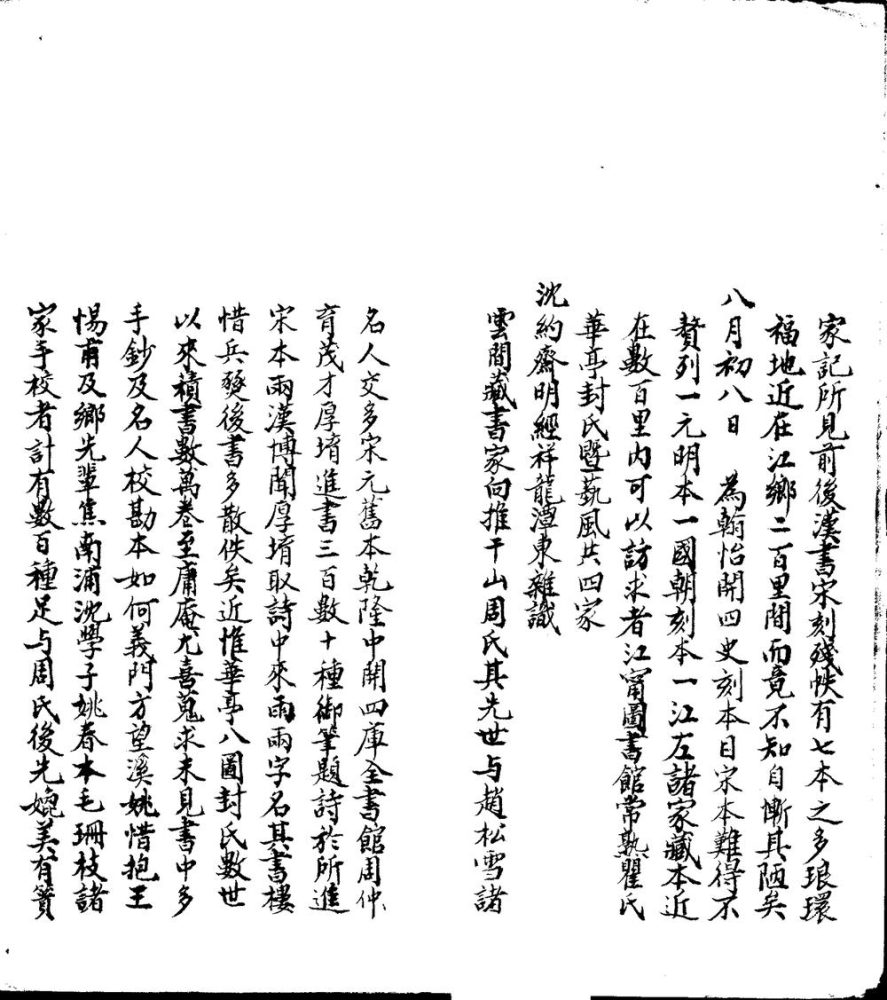 家記所見前後漢書宋刻殘帙有七本之多琅環
福地近在江鄉二百里間而竟不知自慚其陋矣
八月初八日　為翰怡開四史刻本目宋本難得不
贅列一元明本一國朝刻本一江左諸家藏本近
在數百里内可以訪求者江甯圖書館常熟瞿氏
華亭封氏暨藝風共四家
沈約齋明經祥龍潭東雜識
雲間藏書家向推干山周氏其先世与趙松雪諸
名人交多宋元舊本乾隆中開四庫全書館周仲
育茂才厚堉進書三百數十種御筆題詩於所進
宋本兩漢博聞厚堉取詩中來雨兩字名其書樓
惜兵燹後書多散佚矣近惟華亭八圖封氏數世
以來積書數萬卷至庸庵尤喜蒐求未見書中多
手鈔及名人校勘本如何義門方望溪姚惜抱王
惕甫及鄉先輩焦南浦沈學子姚春木毛珊枝諸
家手校者計有數百種足与周氏後先媲美有簣